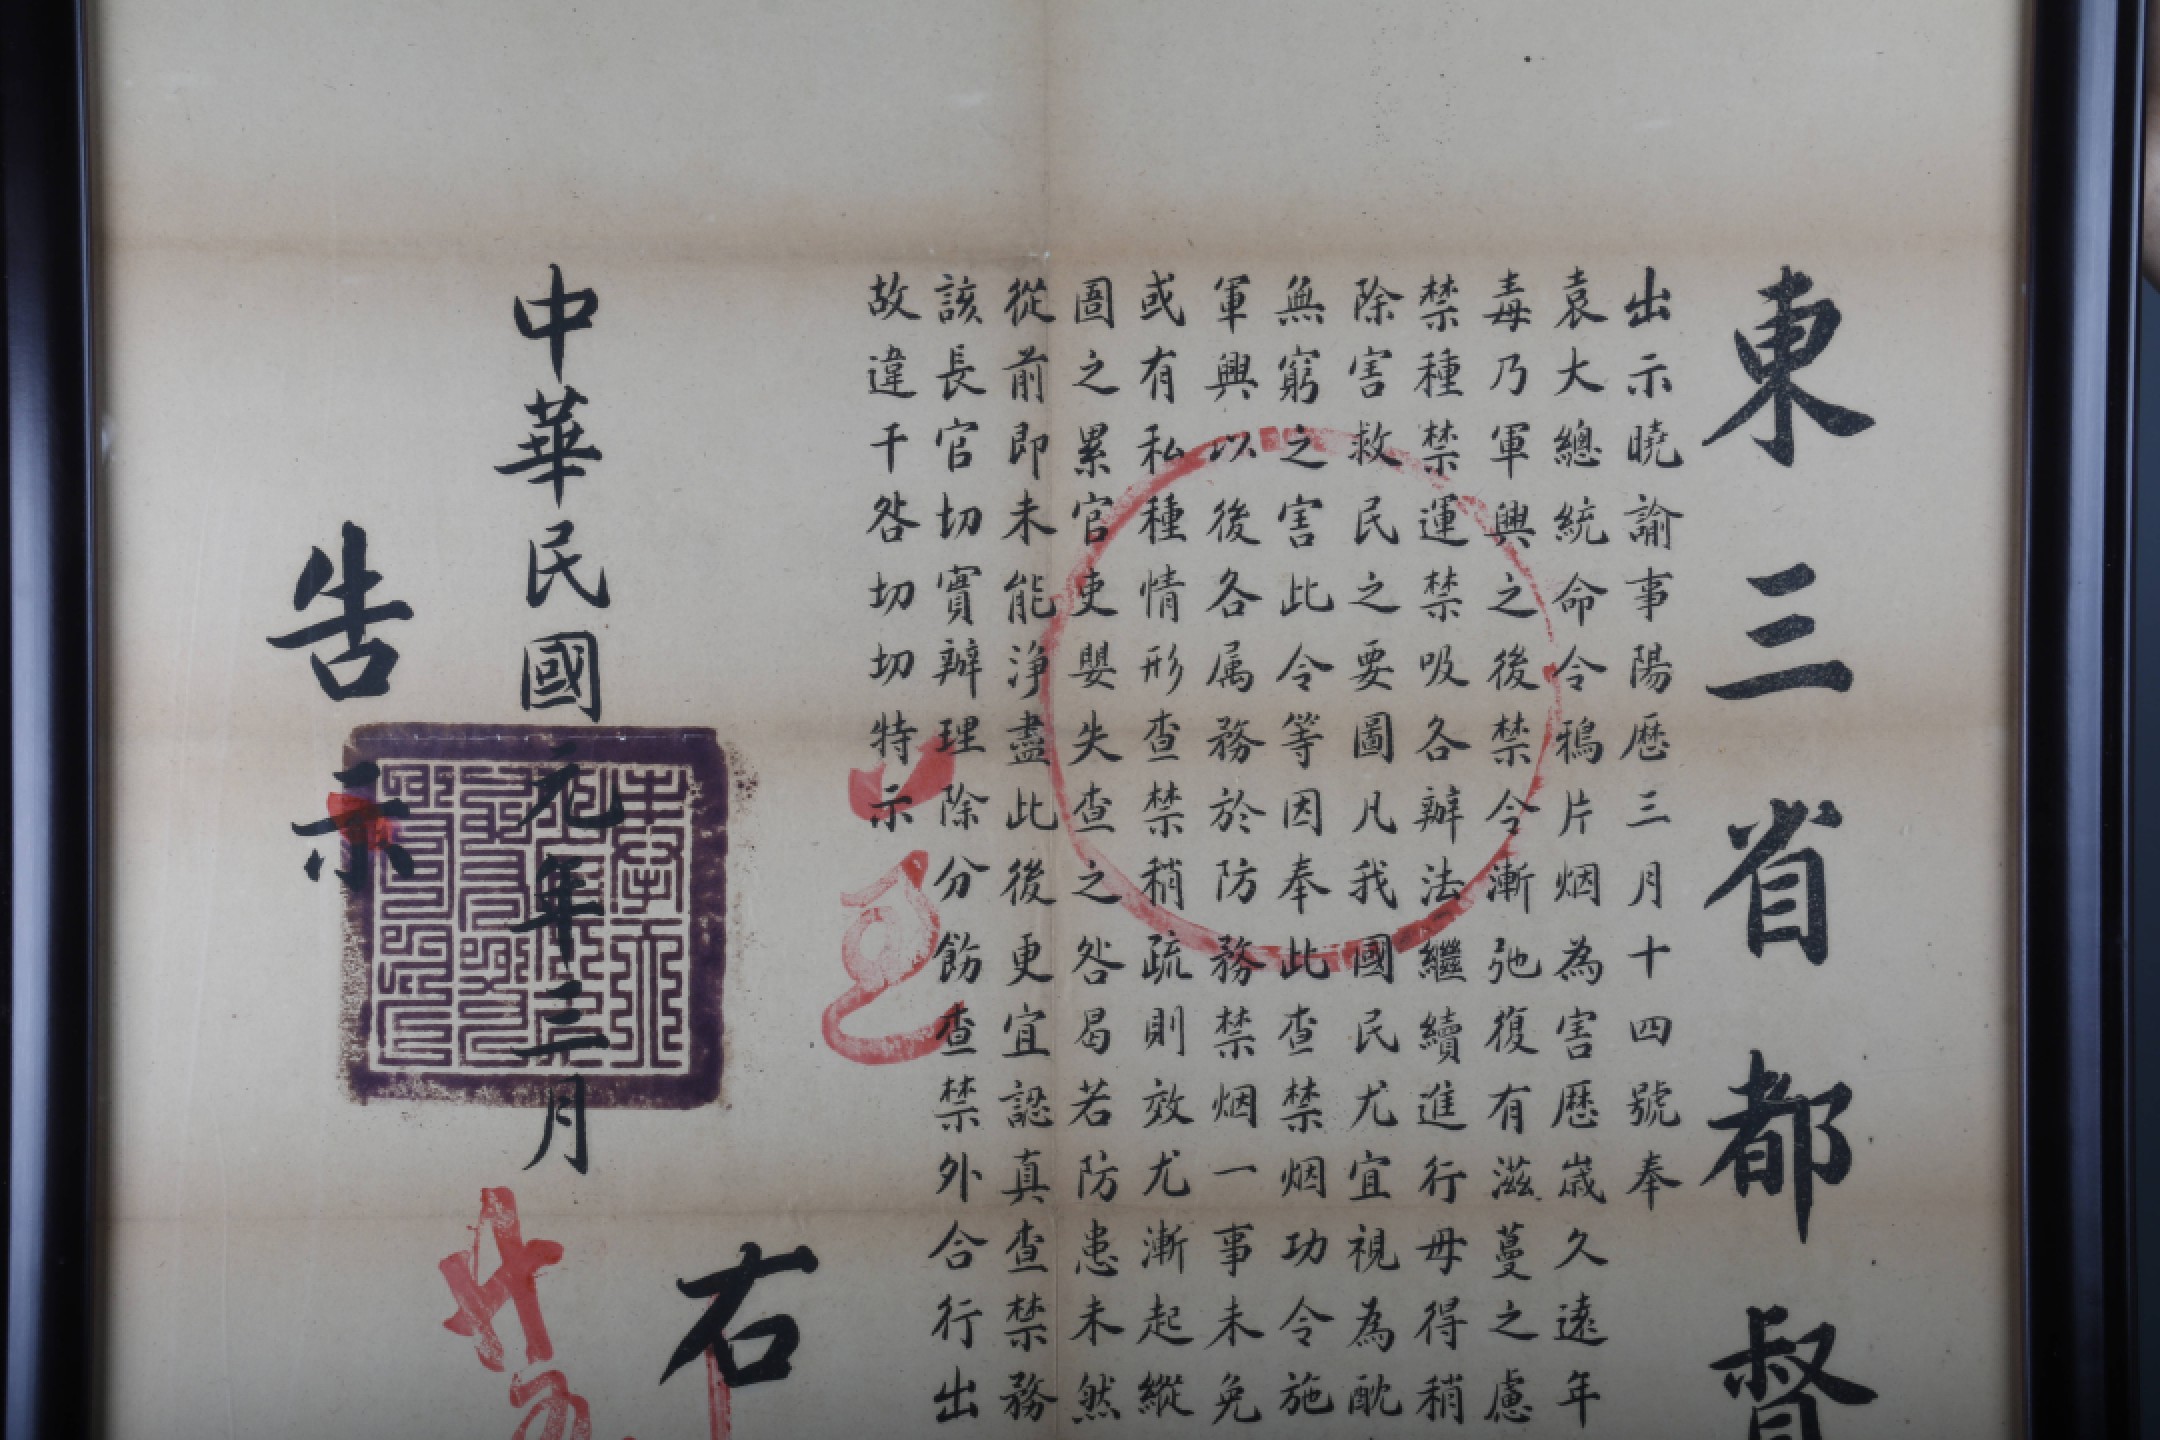 東三省都督
出示曉諭事陽歷三月十四號奉
袁大總統命令鴉片烟為害歷歲久遠年
毒乃軍興之後禁令漸弛復有滋蔓之慮
禁種禁運禁吸各辦法繼續進行毋得稍
除害救民之要圖凡我國民尤宜視為酖
無窮之害此令等因奉此查禁烟功令施
軍興以後各属務於防務禁烟一事未免
或有私種情形查禁稍疏則效尤漸起縱
圖之累官吏嬰失查之咎曷若防患未然
從前即未能淨盡此後更宜認真查禁務
該長官切實辦理除分飭查禁外合行出
故違干咎切切特示
右
中華民國元年三月
告示